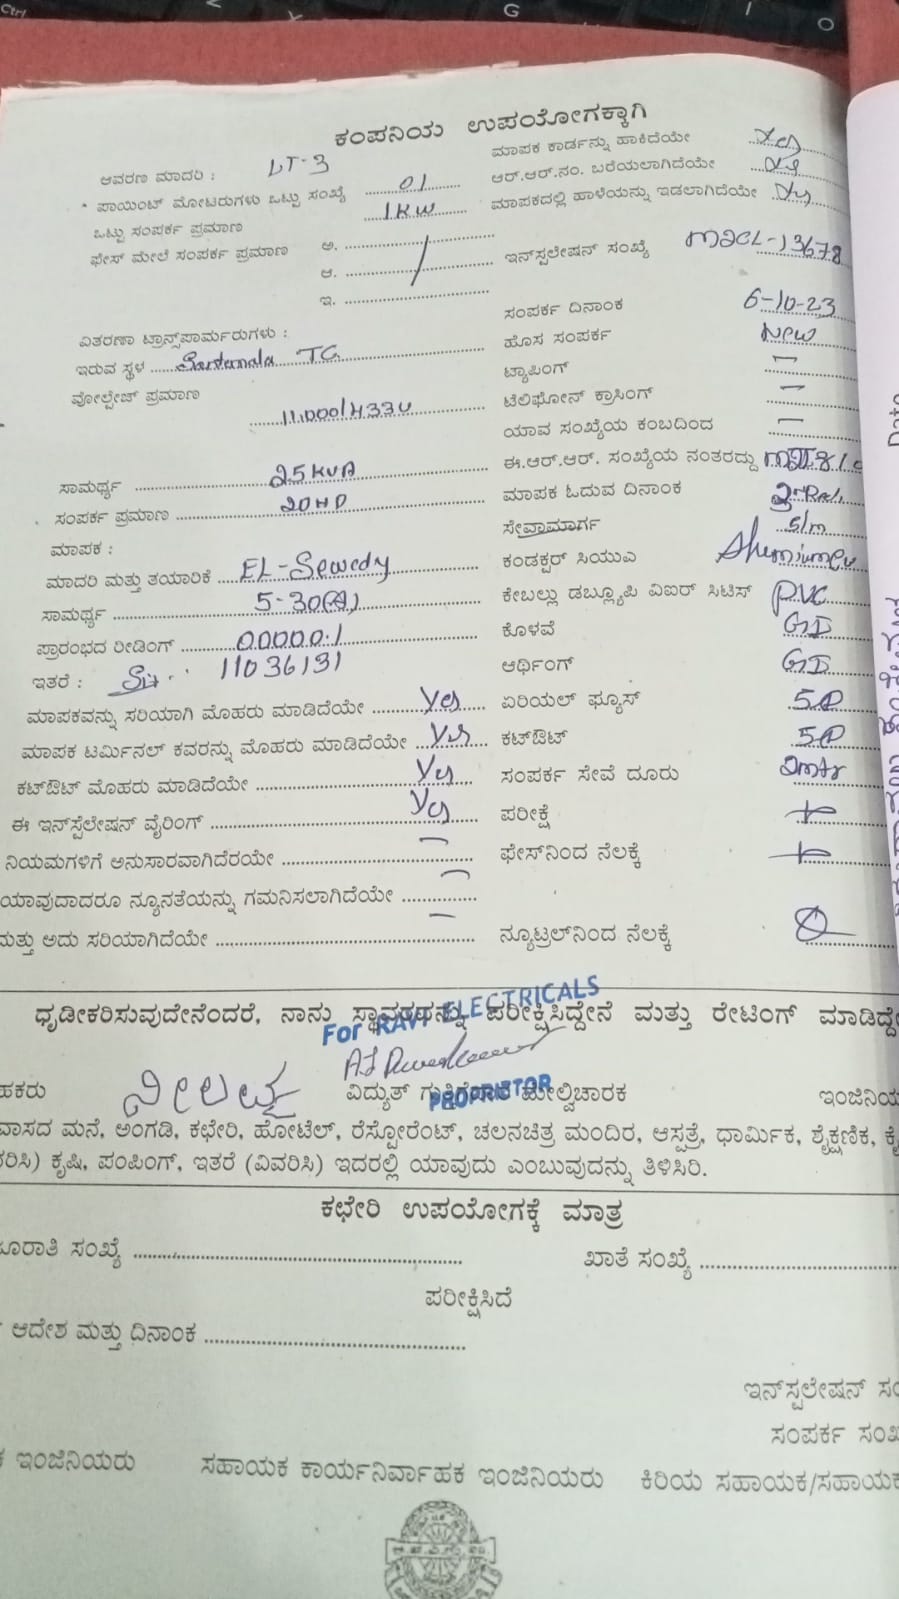 Ctrl
G
I
O
ಕಂಪನಿಯ ಉಪಯೋಗಕ್ಕಾಗಿ
ಆವರಣ ಮಾದರಿ : LT-3
ಮಾಪಕ ಕಾರ್ಡನ್ನು ಹಾಕಿದೆಯೇ Yes
* ಪಾಯಿಂಟ್ ಮೋಟರುಗಳು ಒಟ್ಟು ಸಂಖ್ಯೆ 01
ಆರ್.ಆರ್.ನಂ. ಬರೆಯಲಾಗಿದೆಯೇ
ಒಟ್ಟು ಸಂಪರ್ಕ ಪ್ರಮಾಣ 1KW
ಮಾಪಕದಲ್ಲಿ ಹಾಳೆಯನ್ನು ಇಡಲಾಗಿದೆಯೇ
ಫೇಸ್ ಮೇಲೆ ಸಂಪರ್ಕ ಪ್ರಮಾಣ ಅ.
ಇನ್‌ಸ್ಪಲೇಷನ್ ಸಂಖ್ಯೆ -13678
ಆ.
ಇ.
ಸಂಪರ್ಕ ದಿನಾಂಕ 6-10-23
ವಿತರಣಾ ಟ್ರಾನ್ಸ್‌ಪಾರ್ಮರುಗಳು :
ಹೊಸ ಸಂಪರ್ಕ New
ಇರುವ ಸ್ಥಳ TC
ಟ್ಯಾಪಿಂಗ್ —
ವೋಲ್ಟೇಜ್ ಪ್ರಮಾಣ 11000/433V
ಟೆಲಿಫೋನ್ ಕ್ರಾಸಿಂಗ್ —
ಯಾವ ಸಂಖ್ಯೆಯ ಕಂಬದಿಂದ —
ಸಾಮರ್ಥ್ಯ 25KVA
ಈ.ಆರ್.ಆರ್. ಸಂಖ್ಯೆಯ ನಂತರದ್ದು
ಸಂಪರ್ಕ ಪ್ರಮಾಣ 20HP
ಮಾಪಕ ಓದುವ ದಿನಾಂಕ
ಮಾಪಕ :
ಸೇವಾಮಾರ್ಗ S/m
ಮಾದರಿ ಮತ್ತು ತಯಾರಿಕೆ EL-Sewedy
ಕಂಡಕ್ಟರ್ ಸಿಯುಎ
ಸಾಮರ್ಥ್ಯ 5-30(A)
ಕೇಬಲ್ಲು ಡಬ್ಲ್ಯೂಪಿ ವಿಐರ್ ಸಿಟಿಸ್ PVC
ಪ್ರಾರಂಭದ ರೀಡಿಂಗ್ 00000.1
ಕೊಳವೆ GI
ಇತರೆ : 11036131
ಆರ್ಥಿಂಗ್ GI
ಮಾಪಕವನ್ನು ಸರಿಯಾಗಿ ಮೊಹರು ಮಾಡಿದೆಯೇ Yes
ಏರಿಯಲ್ ಫ್ಯೂಸ್ 5A
ಮಾಪಕ ಟರ್ಮಿನಲ್ ಕವರನ್ನು ಮೊಹರು ಮಾಡಿದೆಯೇ Yes
ಕಟ್‌ಔಟ್ 5A
ಕಟ್‌ಔಟ್ ಮೊಹರು ಮಾಡಿದೆಯೇ Yes
ಸಂಪರ್ಕ ಸೇವೆ ದೂರು
ಈ ಇನ್‌ಸ್ಪೆಲೇಷನ್ ವೈರಿಂಗ್ Yes
ಪರೀಕ್ಷೆ
ನಿಯಮಗಳಿಗೆ ಅನುಸಾರವಾಗಿದೆರಯೇ —
ಫೇಸ್‌ನಿಂದ ನೆಲಕ್ಕೆ
ಯಾವುದಾದರೂ ನ್ಯೂನತೆಯನ್ನು ಗಮನಿಸಲಾಗಿದೆಯೇ —
ಮತ್ತು ಅದು ಸರಿಯಾಗಿದೆಯೇ —
ನ್ಯೂಟ್ರಲ್‌ನಿಂದ ನೆಲಕ್ಕೆ
ಧೃಡೀಕರಿಸುವುದೇನೆಂದರೆ, ನಾನು ಸ್ಥಾವರಣವನ್ನು ಪರೀಕ್ಷಿಸಿದ್ದೇನೆ ಮತ್ತು ರೇಟಿಂಗ್ ಮಾಡಿದ್ದೇ
For RAVI ELECTRICALS
ಹಕರು ನೀಲವ್ವ ವಿದ್ಯುತ್ ಗುತ್ತಿಗೆದಾರ ಮೇಲ್ವಿಚಾರಕ ಇಂಜಿನಿಯ
PROPRIETOR
ವಾಸದ ಮನೆ, ಅಂಗಡಿ, ಕಛೇರಿ, ಹೋಟೆಲ್, ರೆಸ್ಟೋರೆಂಟ್, ಚಲನಚಿತ್ರ ಮಂದಿರ, ಆಸ್ಪತ್ರೆ, ಧಾರ್ಮಿಕ, ಶೈಕ್ಷಣಿಕ, ಕೈ
ವರಿಸಿ) ಕೃಷಿ, ಪಂಪಿಂಗ್, ಇತರೆ (ವಿವರಿಸಿ) ಇದರಲ್ಲಿ ಯಾವುದು ಎಂಬುವುದನ್ನು ತಿಳಿಸಿರಿ.
ಕಛೇರಿ ಉಪಯೋಗಕ್ಕೆ ಮಾತ್ರ
ರಾತಿ ಸಂಖ್ಯೆ
ಖಾತೆ ಸಂಖ್ಯೆ
ಪರೀಕ್ಷಿಸಿದೆ
ಆದೇಶ ಮತ್ತು ದಿನಾಂಕ
ಇನ್‌ಸ್ಪಲೇಷನ್ ಸಂ
ಸಂಪರ್ಕ ಸಂಖ
ಕ ಇಂಜಿನಿಯರು ಸಹಾಯಕ ಕಾರ್ಯನಿರ್ವಾಹಕ ಇಂಜಿನಿಯರು ಕಿರಿಯ ಸಹಾಯಕ/ಸಹಾಯಕ